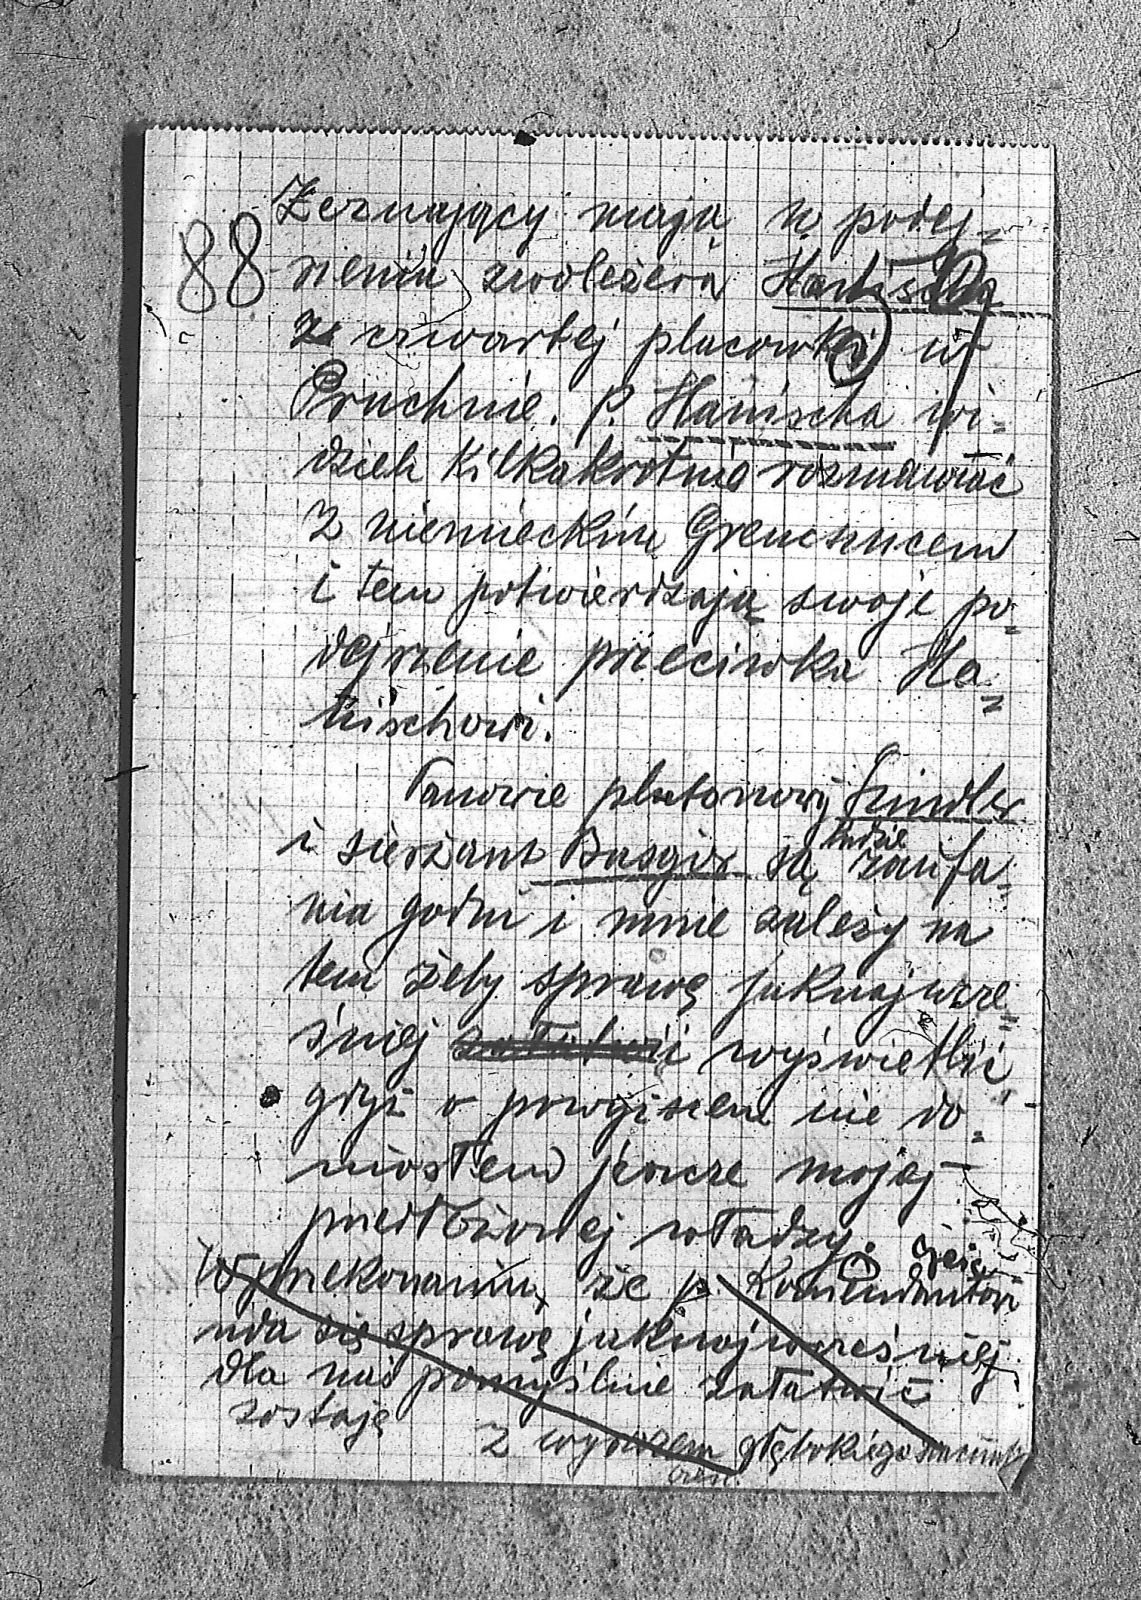 88
Zeznający mają w podej-
rzeniu zwoleżera Hanischa
z czwartej placówki w
Pruchnie. P. Hanischa wi-
dzieli kilkakrotnie rozmawiać
z niemieckim Grenzschucem
i tem potwierdzają swoje po-
dejrzenie przeciwka Ha-
nischowi.
Panowie plutonowy
i sierżant są ludzie zaufa-
nia godni i mnie zależy na
tem żeby sprawę jaknajwcze-
śniej załatwić wyświetlić,
gdyż o powyższem nie do-
niosłem jeszcze mojej
przełożonej władzy.
W przekonaniu, że p. Komendantowi
uda się sprawę jaknajwcześniej
dla nas pomyślnie załatwić
zostaję
z wyrazem głębokiego szacunku